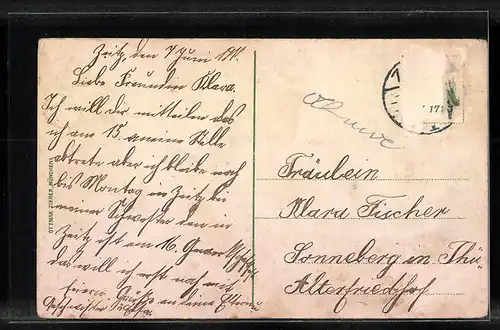 Zeitz, den 7 Juni 191
Liebe Freundin Klara.
Ich will dir mitteilen das
ich am 15. meine Stelle
abtrete aber ich bleibe noch
bis Montag in Zeitz bei
meiner Schwester den in
Zeitz ist am 16.
das will ich erst noch mit
an deine Eltern
Geschwister
OTTMAR ZIEHER, MÜNCHEN
Fräulein
Klara Fischer
Sonneberg in Thü-
Alterfriedhof